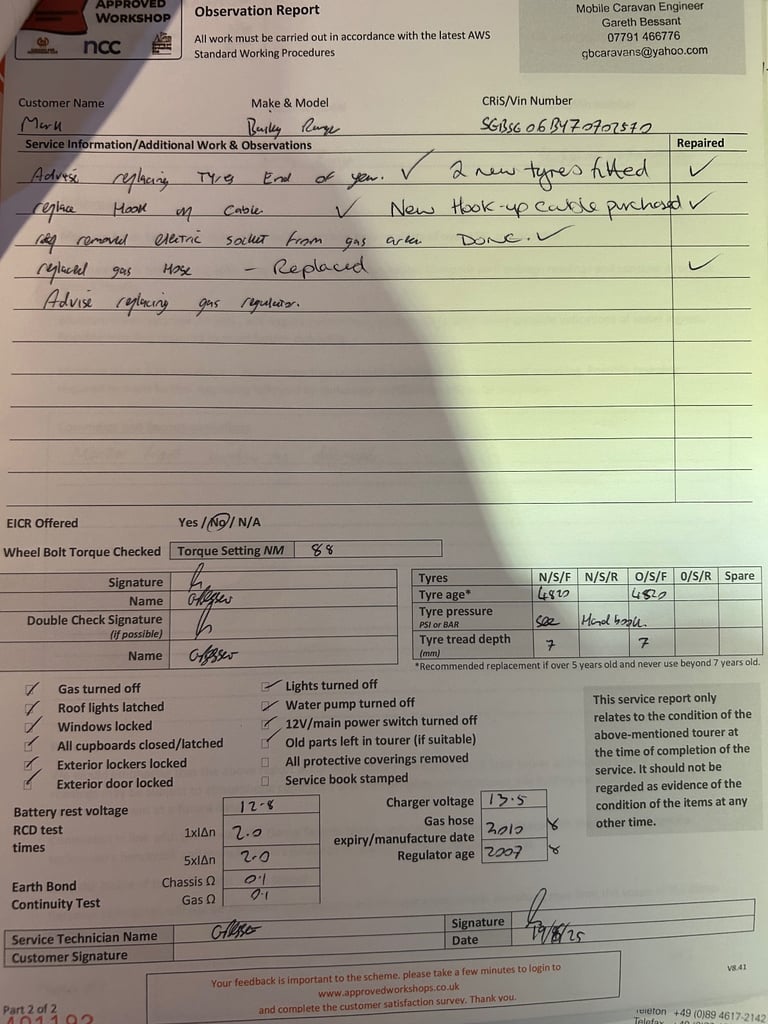 APPROVED
WORKSHOP
ncc
Observation Report
All work must be carried out in accordance with the latest AWS
Standard Working Procedures
Mobile Caravan Engineer
Gareth Bessant
07791 466776
gbcaravans@yahoo.com
Customer Name Make & Model CRiS/Vin Number
Mark
Service Information/Additional Work & Observations Repaired
Advise replacing Tyres End of year. ✓ 2 new tyres fitted ✓
replace Hook on Cable. ✓ New Hook-up cable purchased ✓
removed electric socket from gas area DONE. ✓
replaced gas Hose – Replaced ✓
Advise replacing gas regulator.
EICR Offered Yes / No / N/A
Wheel Bolt Torque Checked Torque Setting NM 88
Signature
Name
Double Check Signature
(if possible)
Name
Tyres N/S/F N/S/R O/S/F O/S/R Spare
Tyre age* 4820 4820
Tyre pressure
PSI or BAR see Hand book.
Tyre tread depth
(mm) 7 7
*Recommended replacement if over 5 years old and never use beyond 7 years old.
Gas turned off
Roof lights latched
Windows locked
All cupboards closed/latched
Exterior lockers locked
Exterior door locked
Lights turned off
Water pump turned off
12V/main power switch turned off
Old parts left in tourer (if suitable)
All protective coverings removed
Service book stamped
This service report only
relates to the condition of the
above-mentioned tourer at
the time of completion of the
service. It should not be
regarded as evidence of the
condition of the items at any
other time.
Battery rest voltage 12.8
RCD test
times
1xIΔn 2.0
5xIΔn 2.0
Earth Bond
Continuity Test
Chassis Ω 0.1
Gas Ω 0.1
Charger voltage 13.5
Gas hose
expiry/manufacture date 2010
Regulator age 2007
Service Technician Name
Customer Signature
Signature
Date
Your feedback is important to the scheme. please take a few minutes to login to
www.approvedworkshops.co.uk
and complete the customer satisfaction survey. Thank you.
V8.41
Part 2 of 2
Telefon +49 (0)89 4617-2142
Telefax